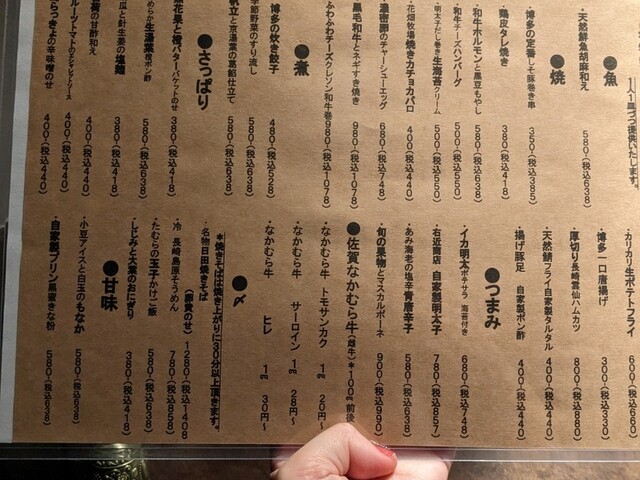 1人1皿づつ提供いたします。
●魚
・天然鮮魚胡麻和え 580-(税込638)
●焼
・博多の定番しそ豚巻き串 350-(税込385)
・鶏皮タレ焼き 380-(税込418)
・和牛ホルモンと黒豆もやし 580-(税込638)
・和牛チーズハンバーグ 500-(税込550)
・明太子だし巻き生海苔クリーム 500-(税込550)
・花畑牧場焼きカチョカバロ 400-(税込440)
・濃密卵のチャーシューエッグ 680-(税込748)
・黒毛和牛とネギすき焼き 980-(税込1078)
ふわふわチーズクレソン和牛巻 980-(税込1078)
●煮
・博多の炊き餃子 480-(税込528)
季節野菜のすり流し 580-(税込638)
帆立と京湯葉の葛餡仕立て 580-(税込638)
●さっぱり
菜花果と橙バターバゲットのせ 380-(税込418)
めらか生湯葉橙ポン酢 580-(税込638)
瓜と針生姜の塩麹 380-(税込418)
荷の甘酢和え 400-(税込440)
ルーツトマト 400-(税込440)
らっきょの辛味噌のせ 400-(税込440)
カリカリ生ポテトフライ 600-(税込660
・博多一口唐揚げ 300-(税込330)
・厚切り長崎雲仙ハムカツ 800-(税込880)
・天然鯖フライ自家製タルタル 400-(税込440)
・揚げ豚足 自家製ポン酢 400-(税込440)
●つまみ
・イカ明太ポテサラ 海苔付き 680-(税込748)
・右近商店 自家製明太子 780-(税込857)
・あみ海老の塩辛青唐辛子 580-(税込638)
・旬の果物とマスカルポーネ 900-(税込990)
●佐賀なかむら牛(雌牛)*100㌘前後
・なかむら牛 トモサンカク 1㌘ 20円~
・なかむら牛 サーロイン 1㌘ 28円~
・なかむら牛 ヒレ 1㌘ 30円~
●〆
*焼きそばは焼き上がりに30分以上頂きます。
・名物日田焼きそば
(卵黄のせ) 1280-(税込1408
・冷 長崎島原そうめん 780-(税込858)
・たむらの玉子かけご飯 580-(税込638)
・しじみと大葉のおにぎり 380-(税込418)
●甘味
・小豆アイスと白玉のもなか 580-(税込638)
・自家製プリン黒蜜きな粉 580-(税込638)